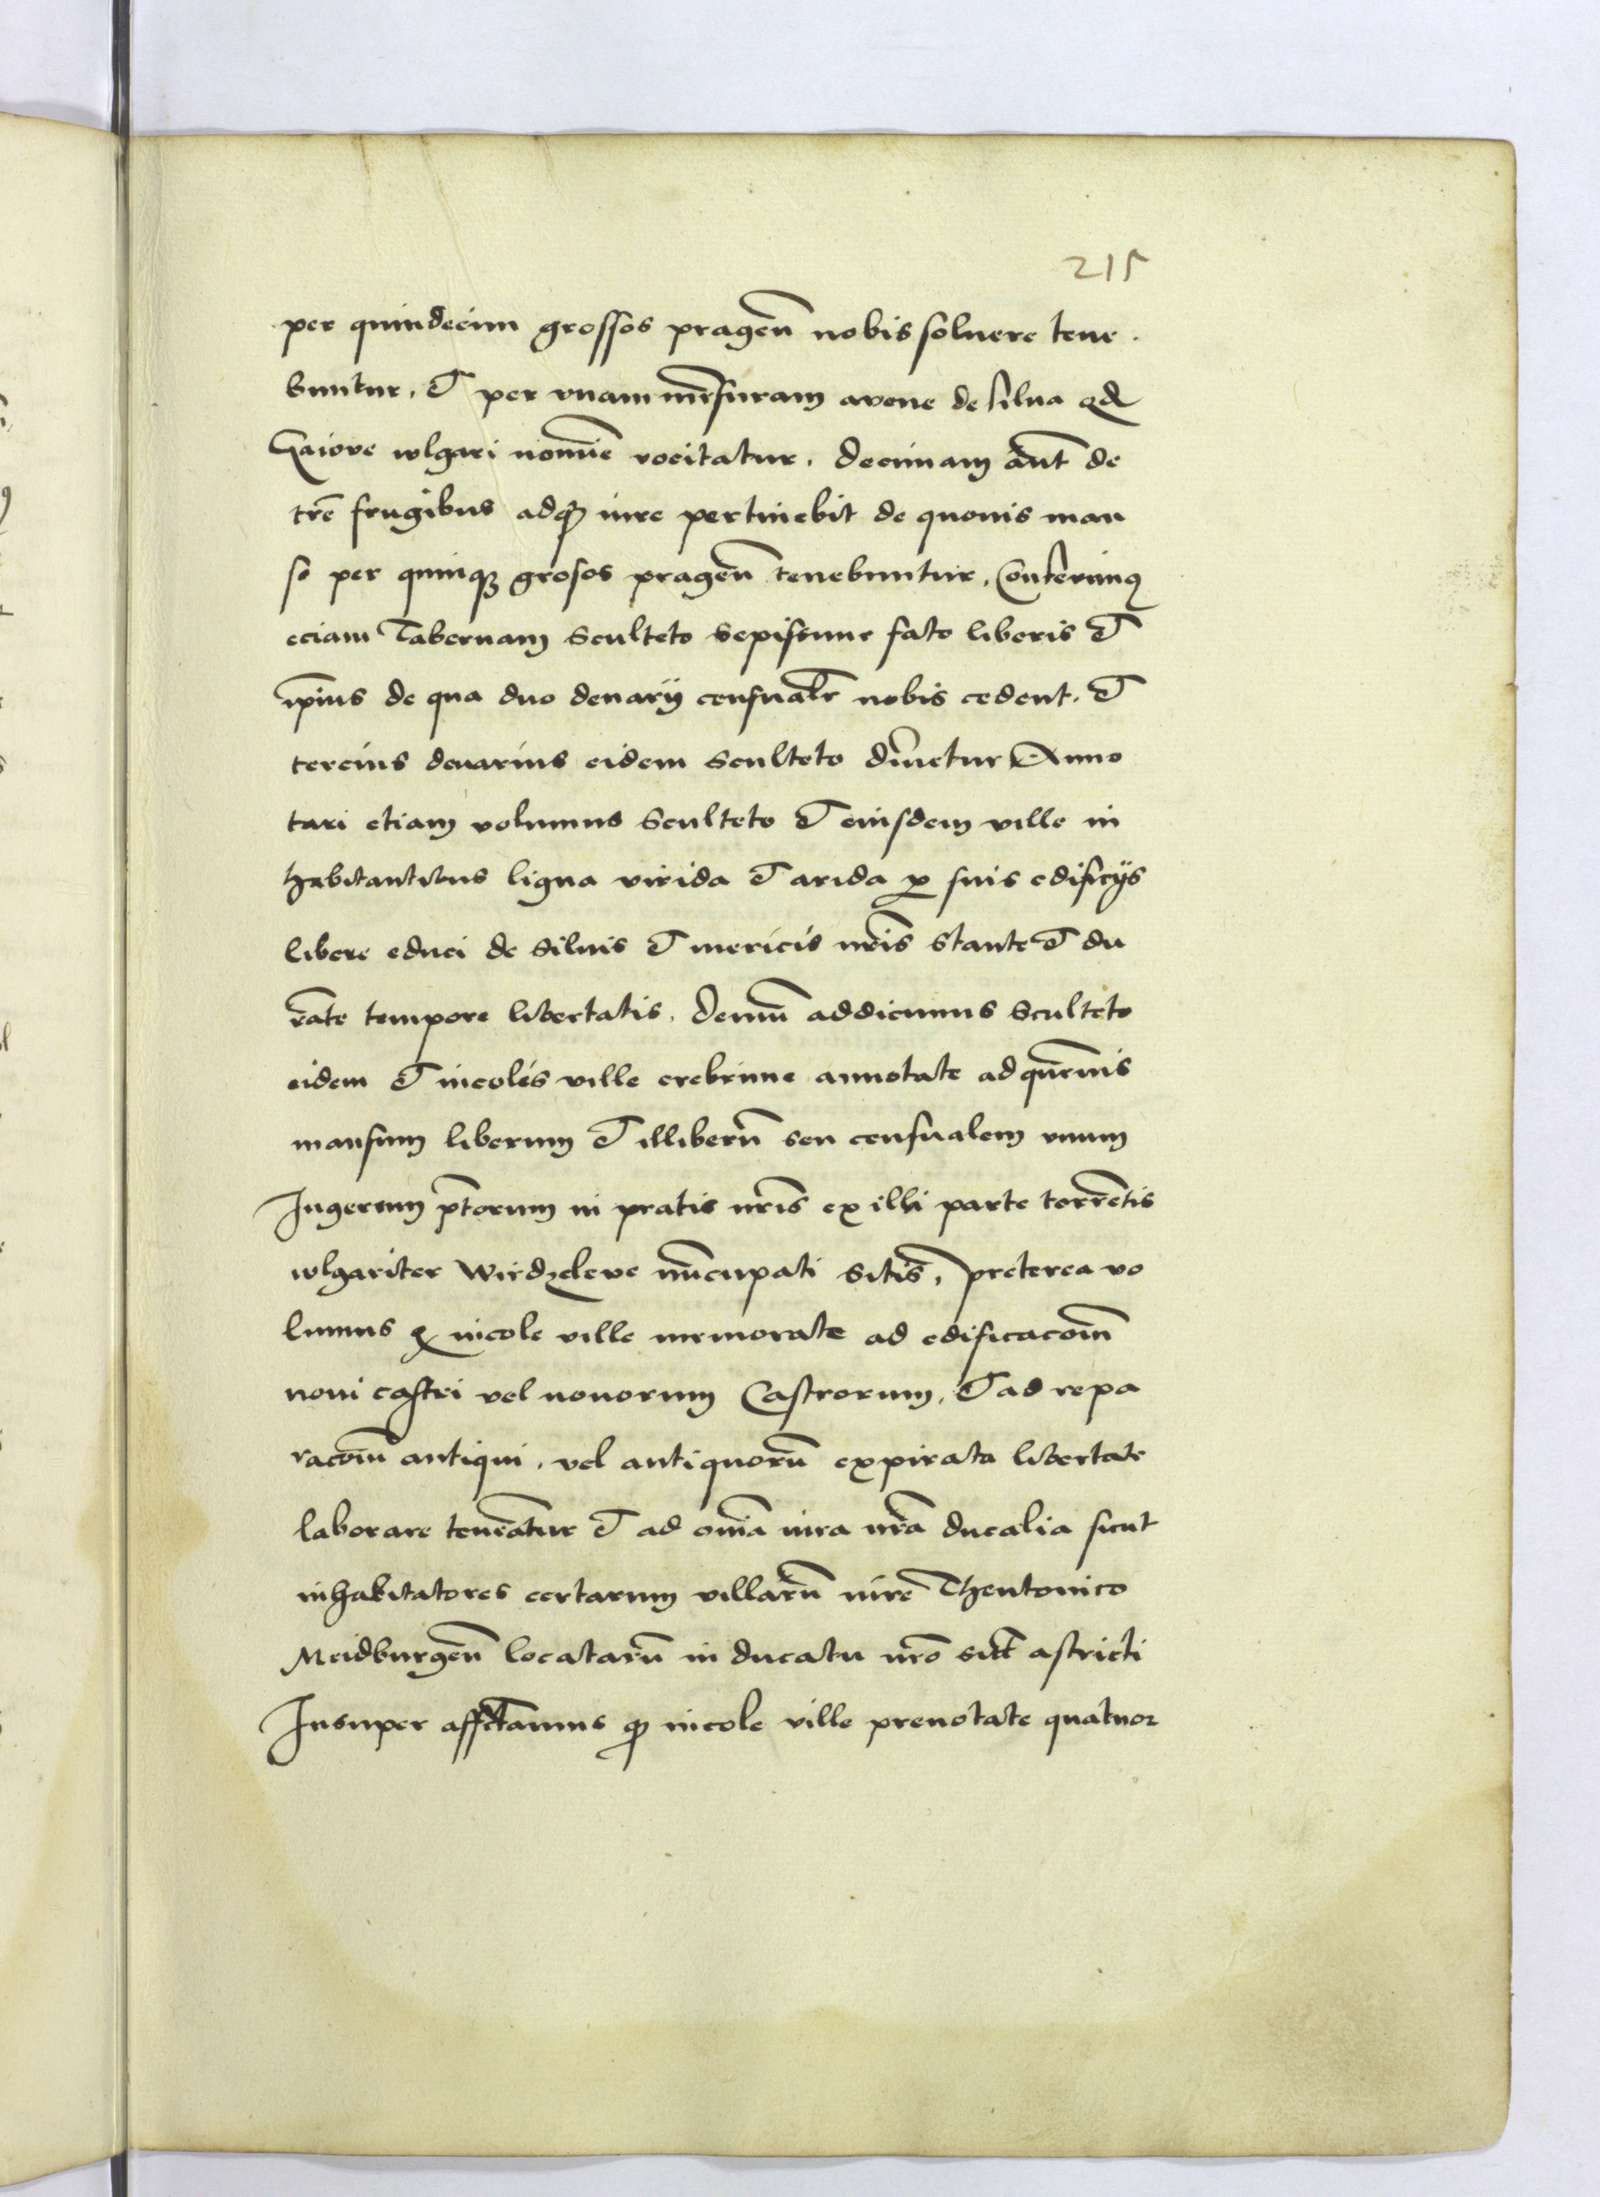 215
per quindecim grossos pragen̄ nobis soluere tene.
buntur. et per vnam mēsuram avene de silua qd
Gaiove wlgari nomīe vocitatur. Decimam aūt de
trē frugibus adq iure pertinebit de quouis man
so per quinqꝫ grosos pragen̄ tenebuntur. Conferimꝰ
eciam Tabernam Sculteto sepissime fato liberis et
ip̄ius de qua duo denarij censualr̄ nobis cedent. et
tercius denarius eidem Sculteto dīmetur Anno
tari etiam volumus Sculteto et eiusdem ville in
habitantibus ligna virida et arida ꝓ suis edificijs
libere educi de Siluis et mericis nr̄is stante et du
rāte tempore libertatis. Demū addicimus Sculteto
eidem et incolis ville crebrime annotate ad quēuis
mansum liberum et illiberū seu censualem vnum
Iugerum p̄torum in pratis nr̄is ex illi parte torrētis
wlgariter Wirdzeleve nūcupati sitis̄, preterea vo
lumus ꝙ incole ville memorate ad edificacōm̄
noui castri vel nouorum Castrorum, et ad repa
racōm̄ antiqui, vel antiquorū expirata libertate
laborare teneātur et ad om̄ia iura nr̄a ducalia sicut
inhabitatores certarum villarū iure Theutonico
Meidburgen̄ locatarū in ducatu nr̄o sūt astricti
Insuper affctamus ꝙ incole ville prenotate quatuor